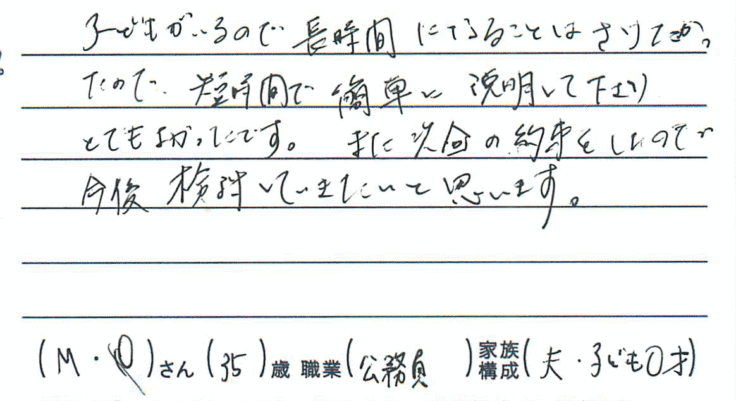 子どもがいるので長時間になることはさけたかっ
たので、短時間で簡単に説明して下さり
とてもよかったです。また次回の約束をしたので
今後検討していきたいと思います。
(M・)さん(35)歳 職業(公務員)家族構成(夫・子ども0才)